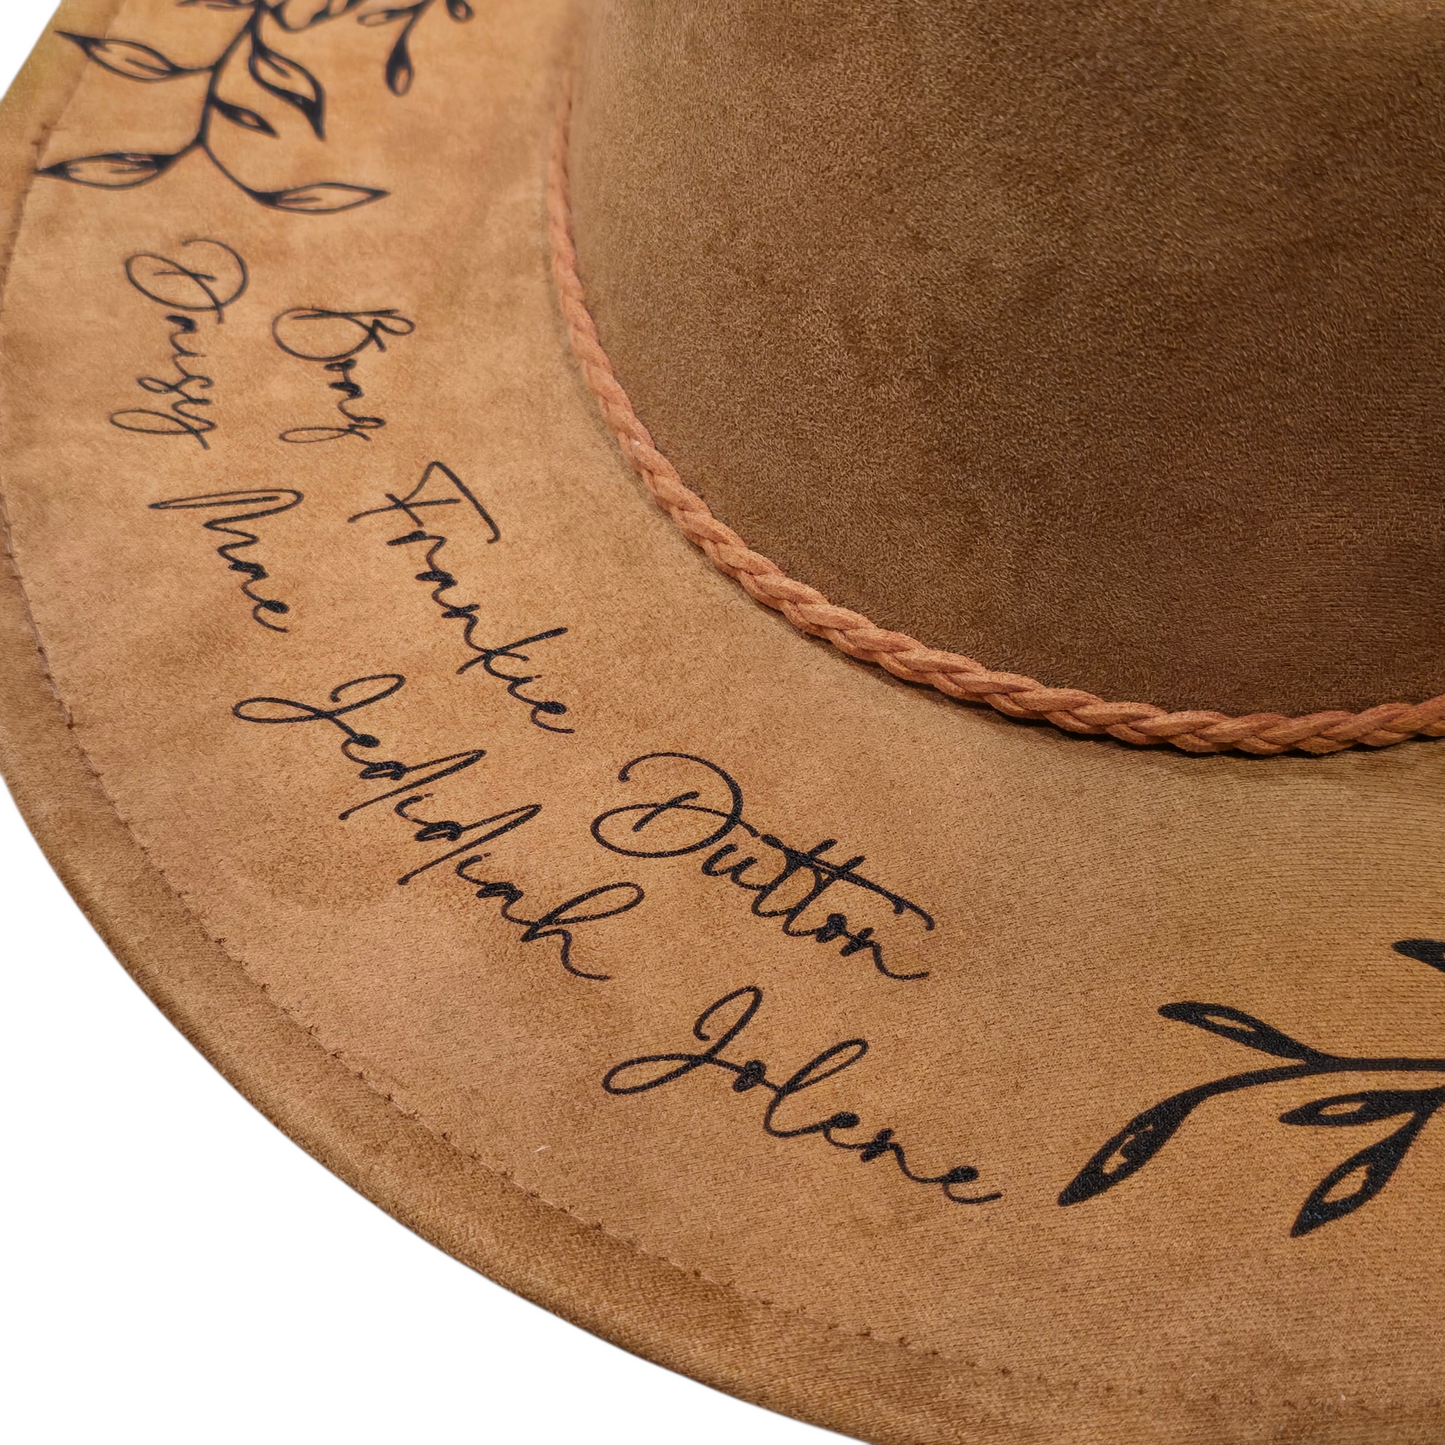 Bong
Daisy
Mae
Frankie
Jedidiah
Dutton
Jolene